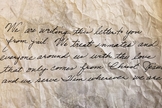 We are writing this letter to you
from jail. We treat inmates and
everyone around us with the love
that only comes from
and we serve Him wherever we are